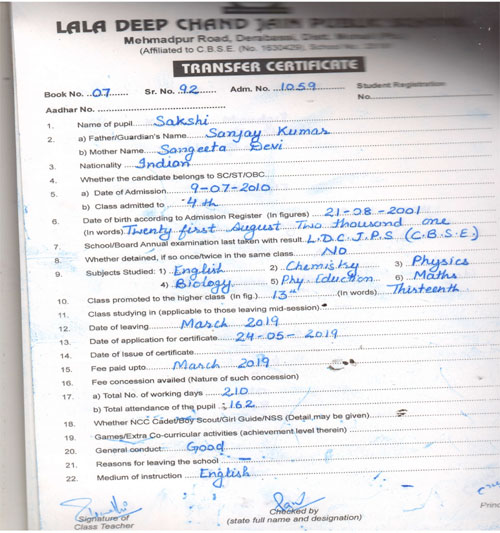 LALA DEEP CHAND JAIN PUBLIC
Mehmadpur Road, Derabassi, Distt.
(Affiliated to C.B.S.E. (No. 1630429), School No.
TRANSFER CERTIFICATE
Book No. 07 Sr. No. 92 Adm. No. 1059 Student Registration
Aadhar No. No.
1. Name of pupil Sakshi
2. a) Father/Guardian's Name Sanjay Kumar
b) Mother Name Sangeeta Devi
3. Nationality Indian
4. Whether the candidate belongs to SC/ST/OBC
5. a) Date of Admission 9-07-2010
b) Class admitted to 4th
6. Date of birth according to Admission Register (In figures) 21-08-2001
(In words) Twenty first August Two thousand one
7. School/Board Annual examination last taken with result L.D.C.J.P.S (C.B.S.E)
8. Whether detained, if so once/twice in the same class NO
9. Subjects Studied: 1) English 2) Chemistry 3) Physics
4) Biology 5) Phy. Eduction 6) Maths
10. Class promoted to the higher class (In fig.) 13th (In words) Thisteenth
11. Class studying in (applicable to those leaving mid-session)
12. Date of leaving March 2019
13. Date of application for certificate 24-05-2019
14. Date of issue of certificate
15. Fee paid upto March 2019
16. Fee concession availed (Nature of such concession)
17. a) Total No. of working days 210
b) Total attendance of the pupil 162
18. Whether NCC Cadet/Boy Scout/Girl Guide/NSS (Detail, may be given)
19. Games/Extra Co-curricular activities (achievement level therein)
20. General conduct Good
21. Reasons for leaving the school
22. Medium of instruction English
Signature of Checked by Princ
Class Teacher (state full name and designation)